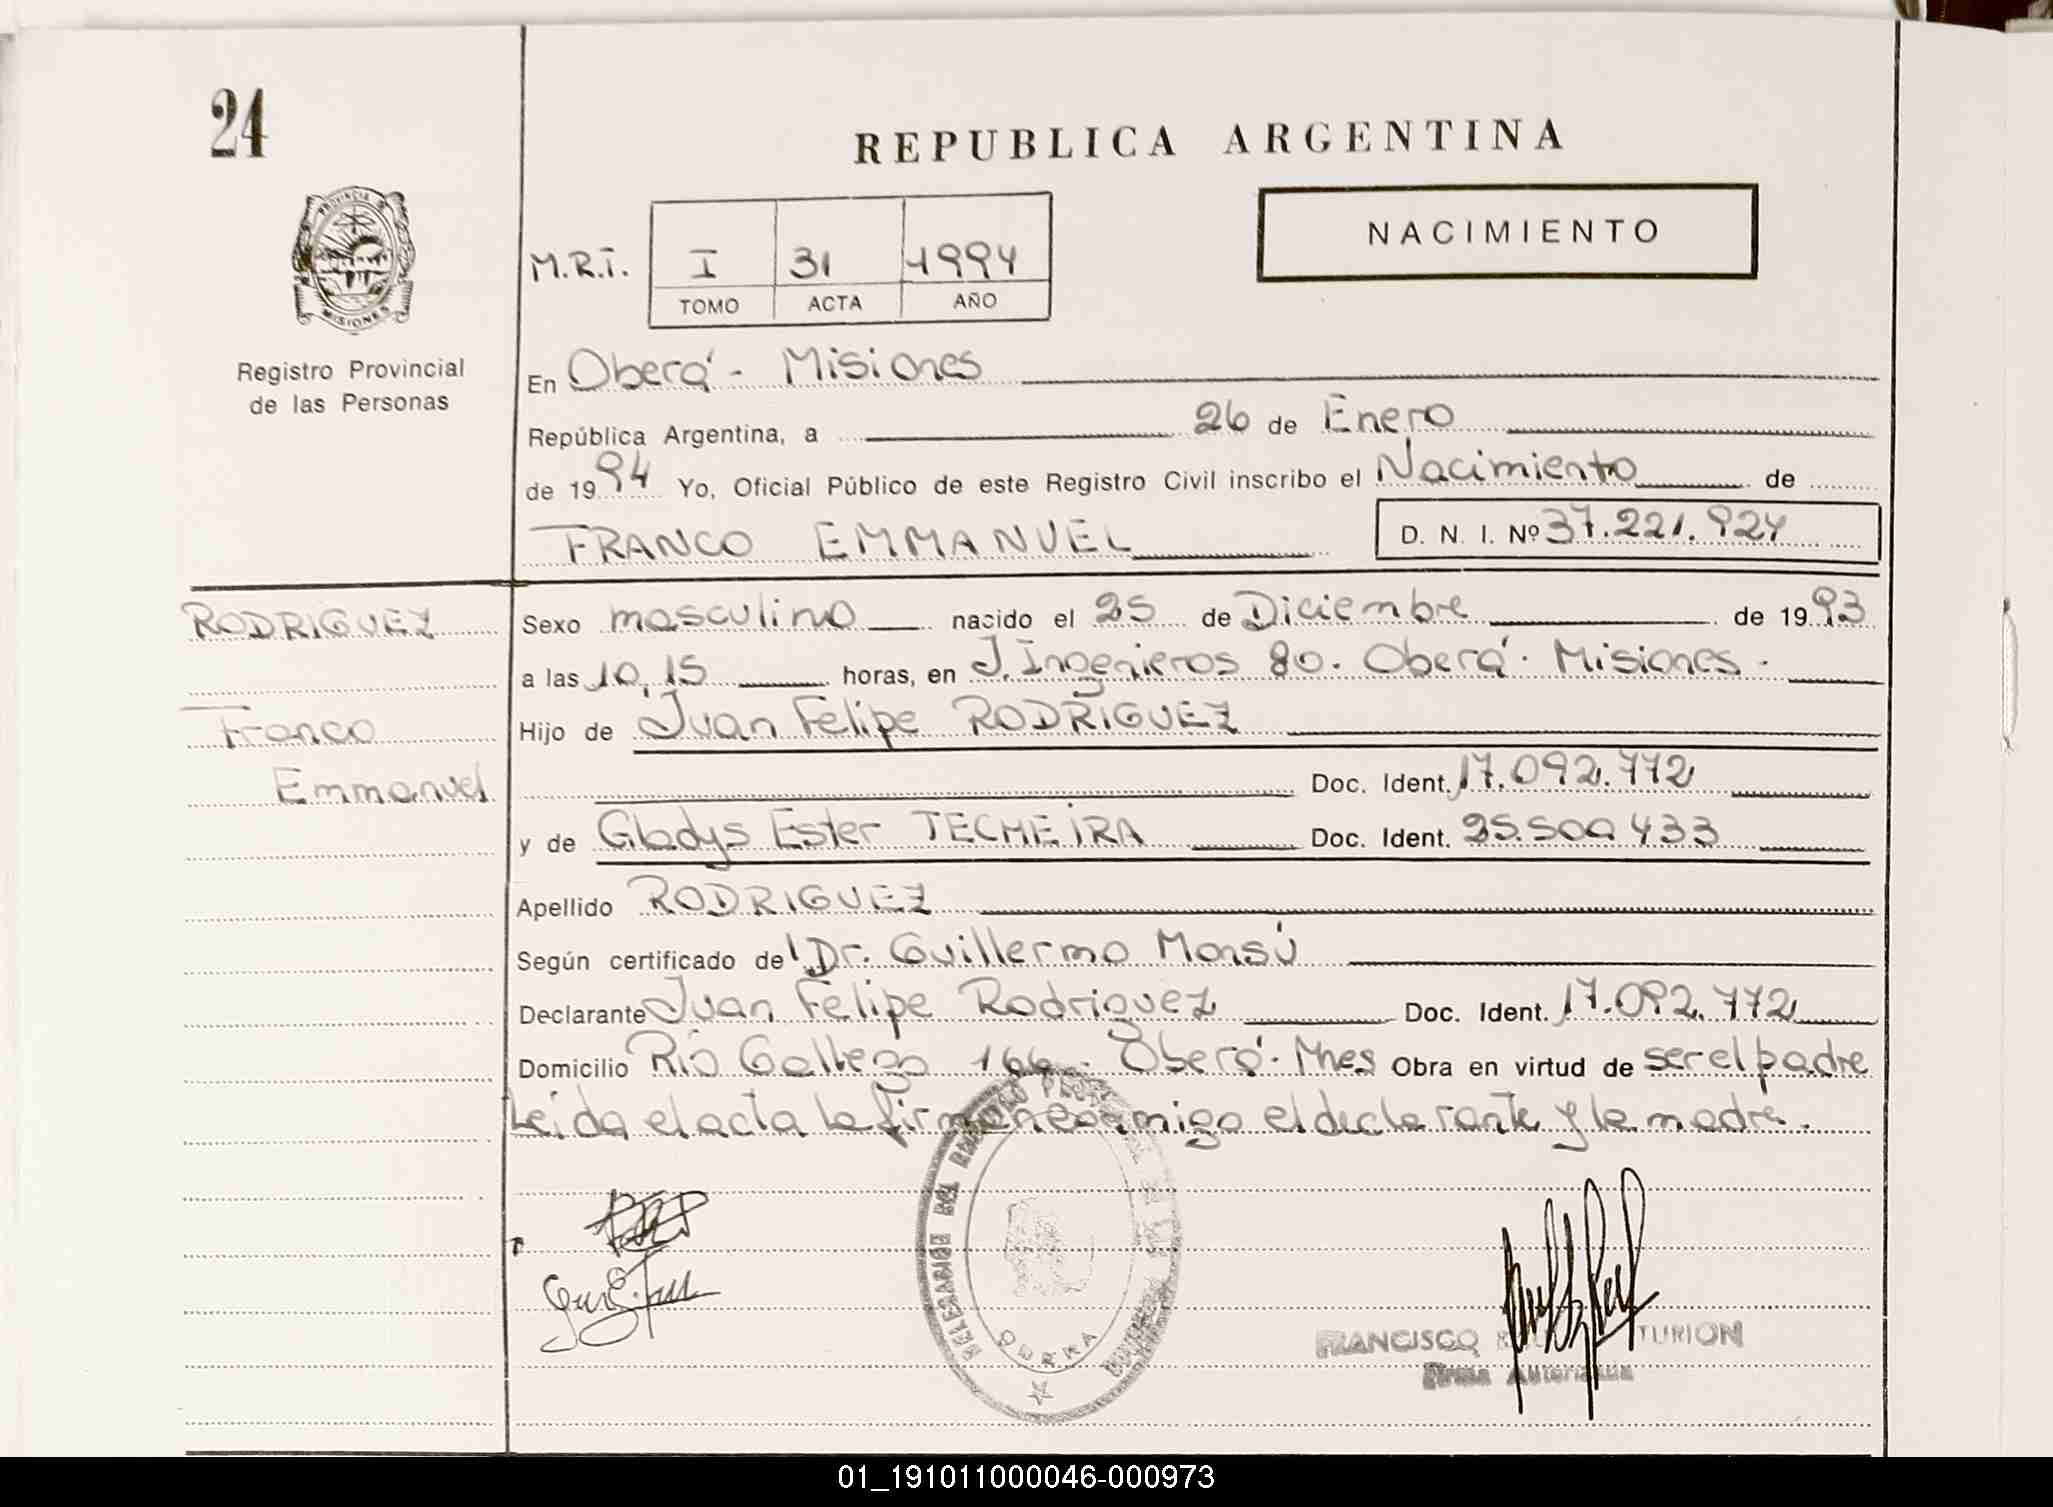 24
REPUBLICA ARGENTINA
NACIMIENTO
PROVINCIA D
MISIONES
Registro Provincial
de las Personas
M.R.I. I 31 1994
TOMO ACTA AÑO
En Oberá - Misiones
República Argentina, a 26 de Enero
de 1994 Yo, Oficial Público de este Registro Civil inscribo el Nacimiento de
FRANCO EMMANUEL D. N. I. Nº 37.221.924
RODRIGUEZ
Franco
Emmanuel
Sexo masculino nacido el 25 de Diciembre de 1993
a las 10,15 horas, en J. Ingenieros 80. Oberá. Misiones.
Hijo de Juan Felipe RODRIGUEZ
Doc. Ident. 17.092.772
y de Gladys Ester TECHEIRA Doc. Ident. 25.500.433
Apellido RODRIGUEZ
Según certificado del Dr. Guillermo Monsú
Declarante Juan Felipe Rodriguez Doc. Ident. 17.092.772
Domicilio Río Gallego 166 - Oberá. Mnes Obra en virtud de ser el padre
Leida el acta la firman conmigo el declarante y la madre.
DELEGACIÓN DEL REGISTRO
OBERA
FRANCISCO TURION
Firma Autorizada
01_191011000046-000973